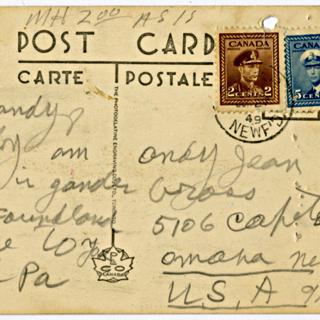 MH 2.00 AS IS
POST CARD
CARTE POSTALE
CANADA
2 CENTS 2
CANADA
5 CENTS
49
NEWF'D
THE PHOTOGELATINE ENGRAVING CO. LTD. TORONTO
andy
am
gander
oundland
Pa
PECO
CANADA
andy Jean
Gross
5106 Capit
omaha ne
U.S.A